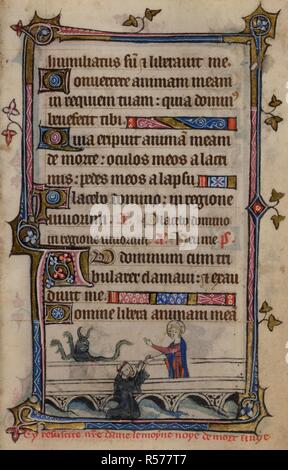 humiliatus sū & liberauit me.
Conuertere animam meam
in requiem tuam: quia domin⁹
benefecit tibi
Quia eripuit animā meam
de morte: oculos meos a lacri
mis: pedes meos a lapsu.
Placebo domino: in regione
uiuorum. Placebo domino
in regione uiuorum. ps.
AD dominum cum tri
bularer clamaui: & exau
diuit me.
Domine libera animam meā
Cy resuscite nr̄e dame le moyne noye de mort a uye
alamy
R577T7